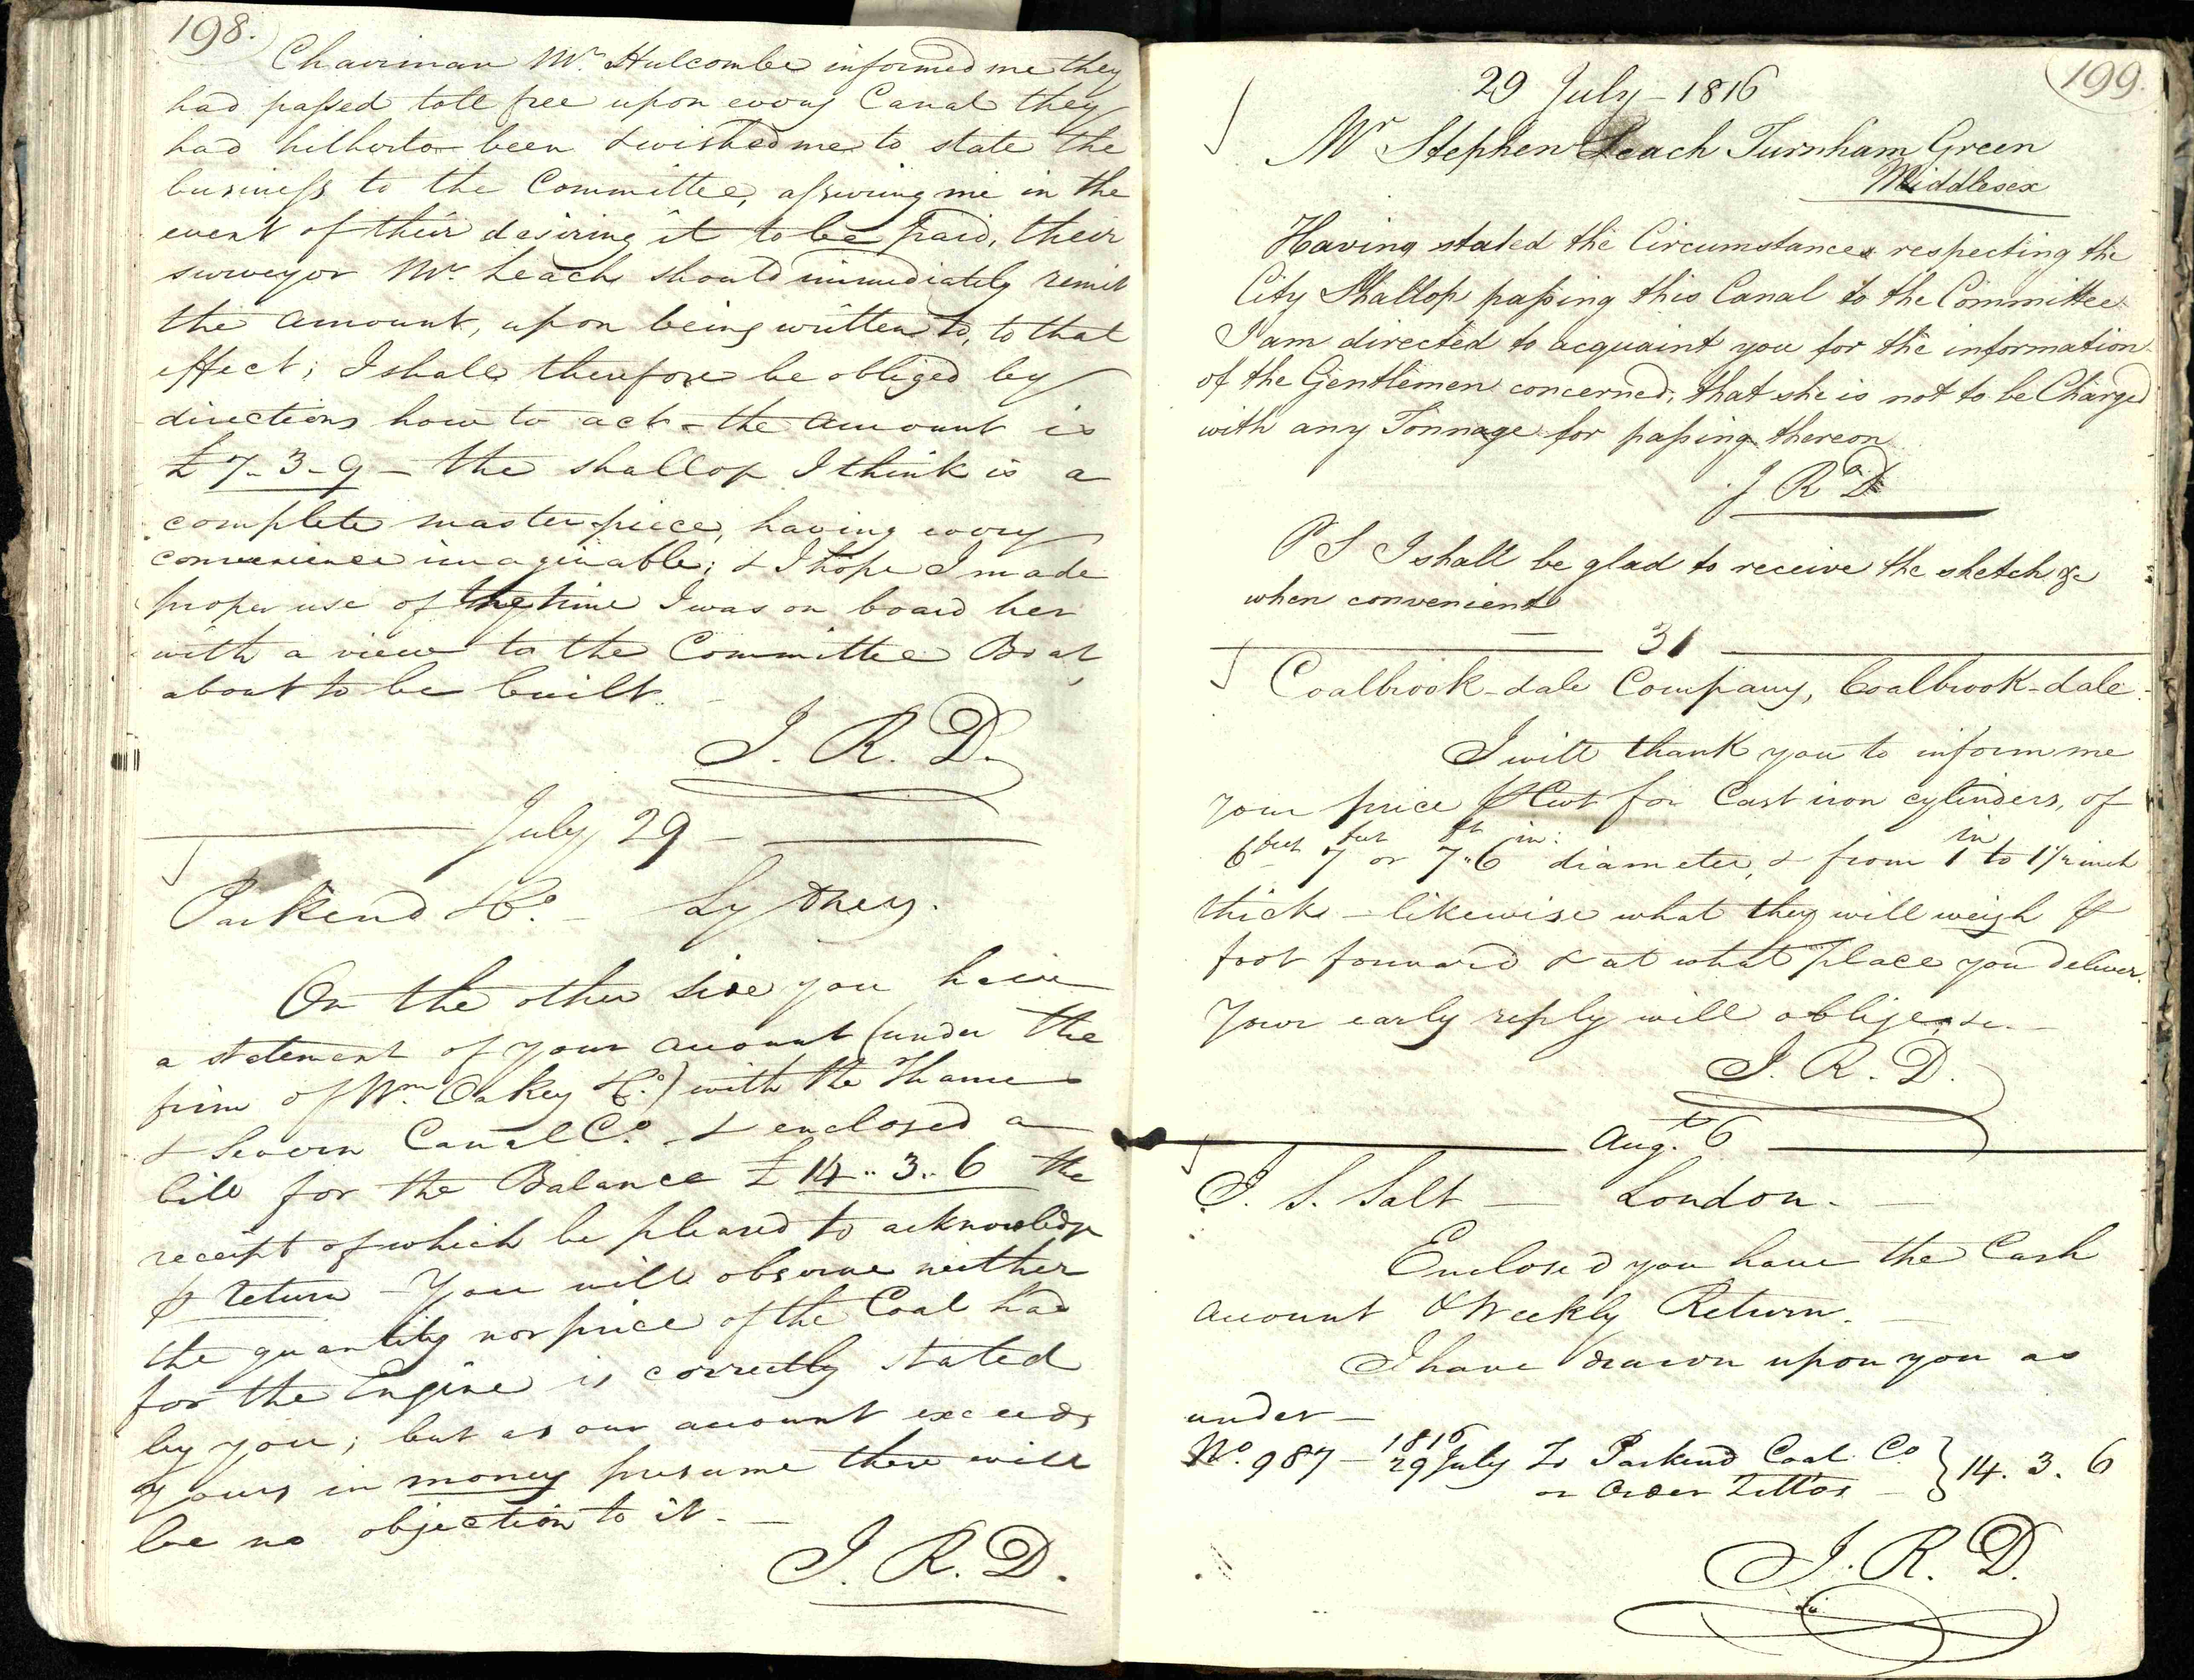 198.
Chairman Mr. Hulcombe informed me they
had passed toll free upon every Canal they
had hitherto been & wished me to state the
business to the Committee, assuring me in the
event of their desiring it to be paid, their
surveyor Mr. Leach should immediately remit
the amount, upon being written to, to that
effect; I shall therefore be obliged by
directions how to act - the amount is
£7-3-9 - the shallop I think is a
complete masterpiece, having every
convenience imaginable; & I hope I made
proper use of the time I was on board her
with a view to the Committee Boat,
about to be built.
J. R. D.
July 29
Parkend & Co. - Lydney.
On the other side you have
a statement of your account (under the
firm of Wm. Oakey & Co.) with the Thames
& Severn Canal Co. & enclosed a
bill for the Balance £14..3..6 the
receipt of which be pleased to acknowledge
⅌ return - You will observe neither
the quantity nor price of the Coal had
for the Engine is correctly stated
by you; but as our account exceeds
yours in money presume there will
be no objection to it. -
J. R. D.
199.
29 July - 1816
Mr Stephen Leach Turnham Green
Middlesex
Having stated the Circumstances respecting the
City Shallop passing this Canal to the Committee
I am directed to acquaint you for the information
of the Gentlemen concerned, that she is not to be Charged
with any Tonnage for passing thereon
J R D
P S I shall be glad to receive the sketch &c
when convenient
31
Coalbrook-dale Company, Coalbrook-dale.
I will thank you to inform me
your price ⅌ Cwt for Cast iron cylinders, of
6 feet 7 feet or 7 ft 6 in: diameter, & from 1 in to 1 1/2 inch
thick - likewise what they will weigh ⅌
foot forward & at what place you deliver.
Your early reply will oblige &c. -
J. R. D.
Augt. 6
J. S. Salt - London. -
Enclosed you have the Cash
account & Weekly Return. -
I have drawn upon you as
under -
No. 987 - 1816 29 July To Parkend Coal Co } 14. 3. 6
or Order
J. R. D.